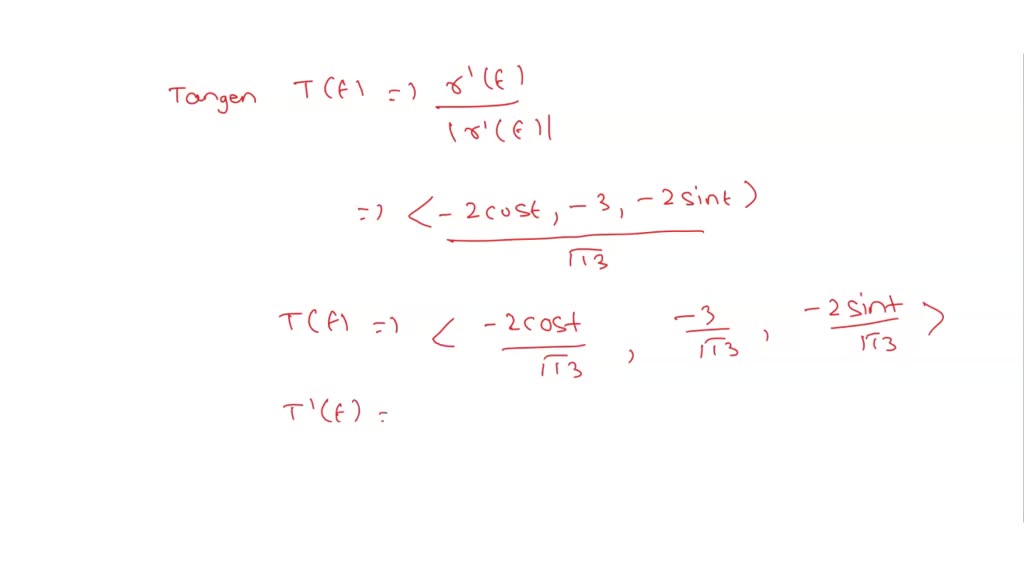 Tangen T(t) => r'(t)
|r'(t)|
=> <-2cost, -3, -2sint>
√13
T(t) => < -2cost/√13, -3/√13, -2sint/√13 >
T'(t) =